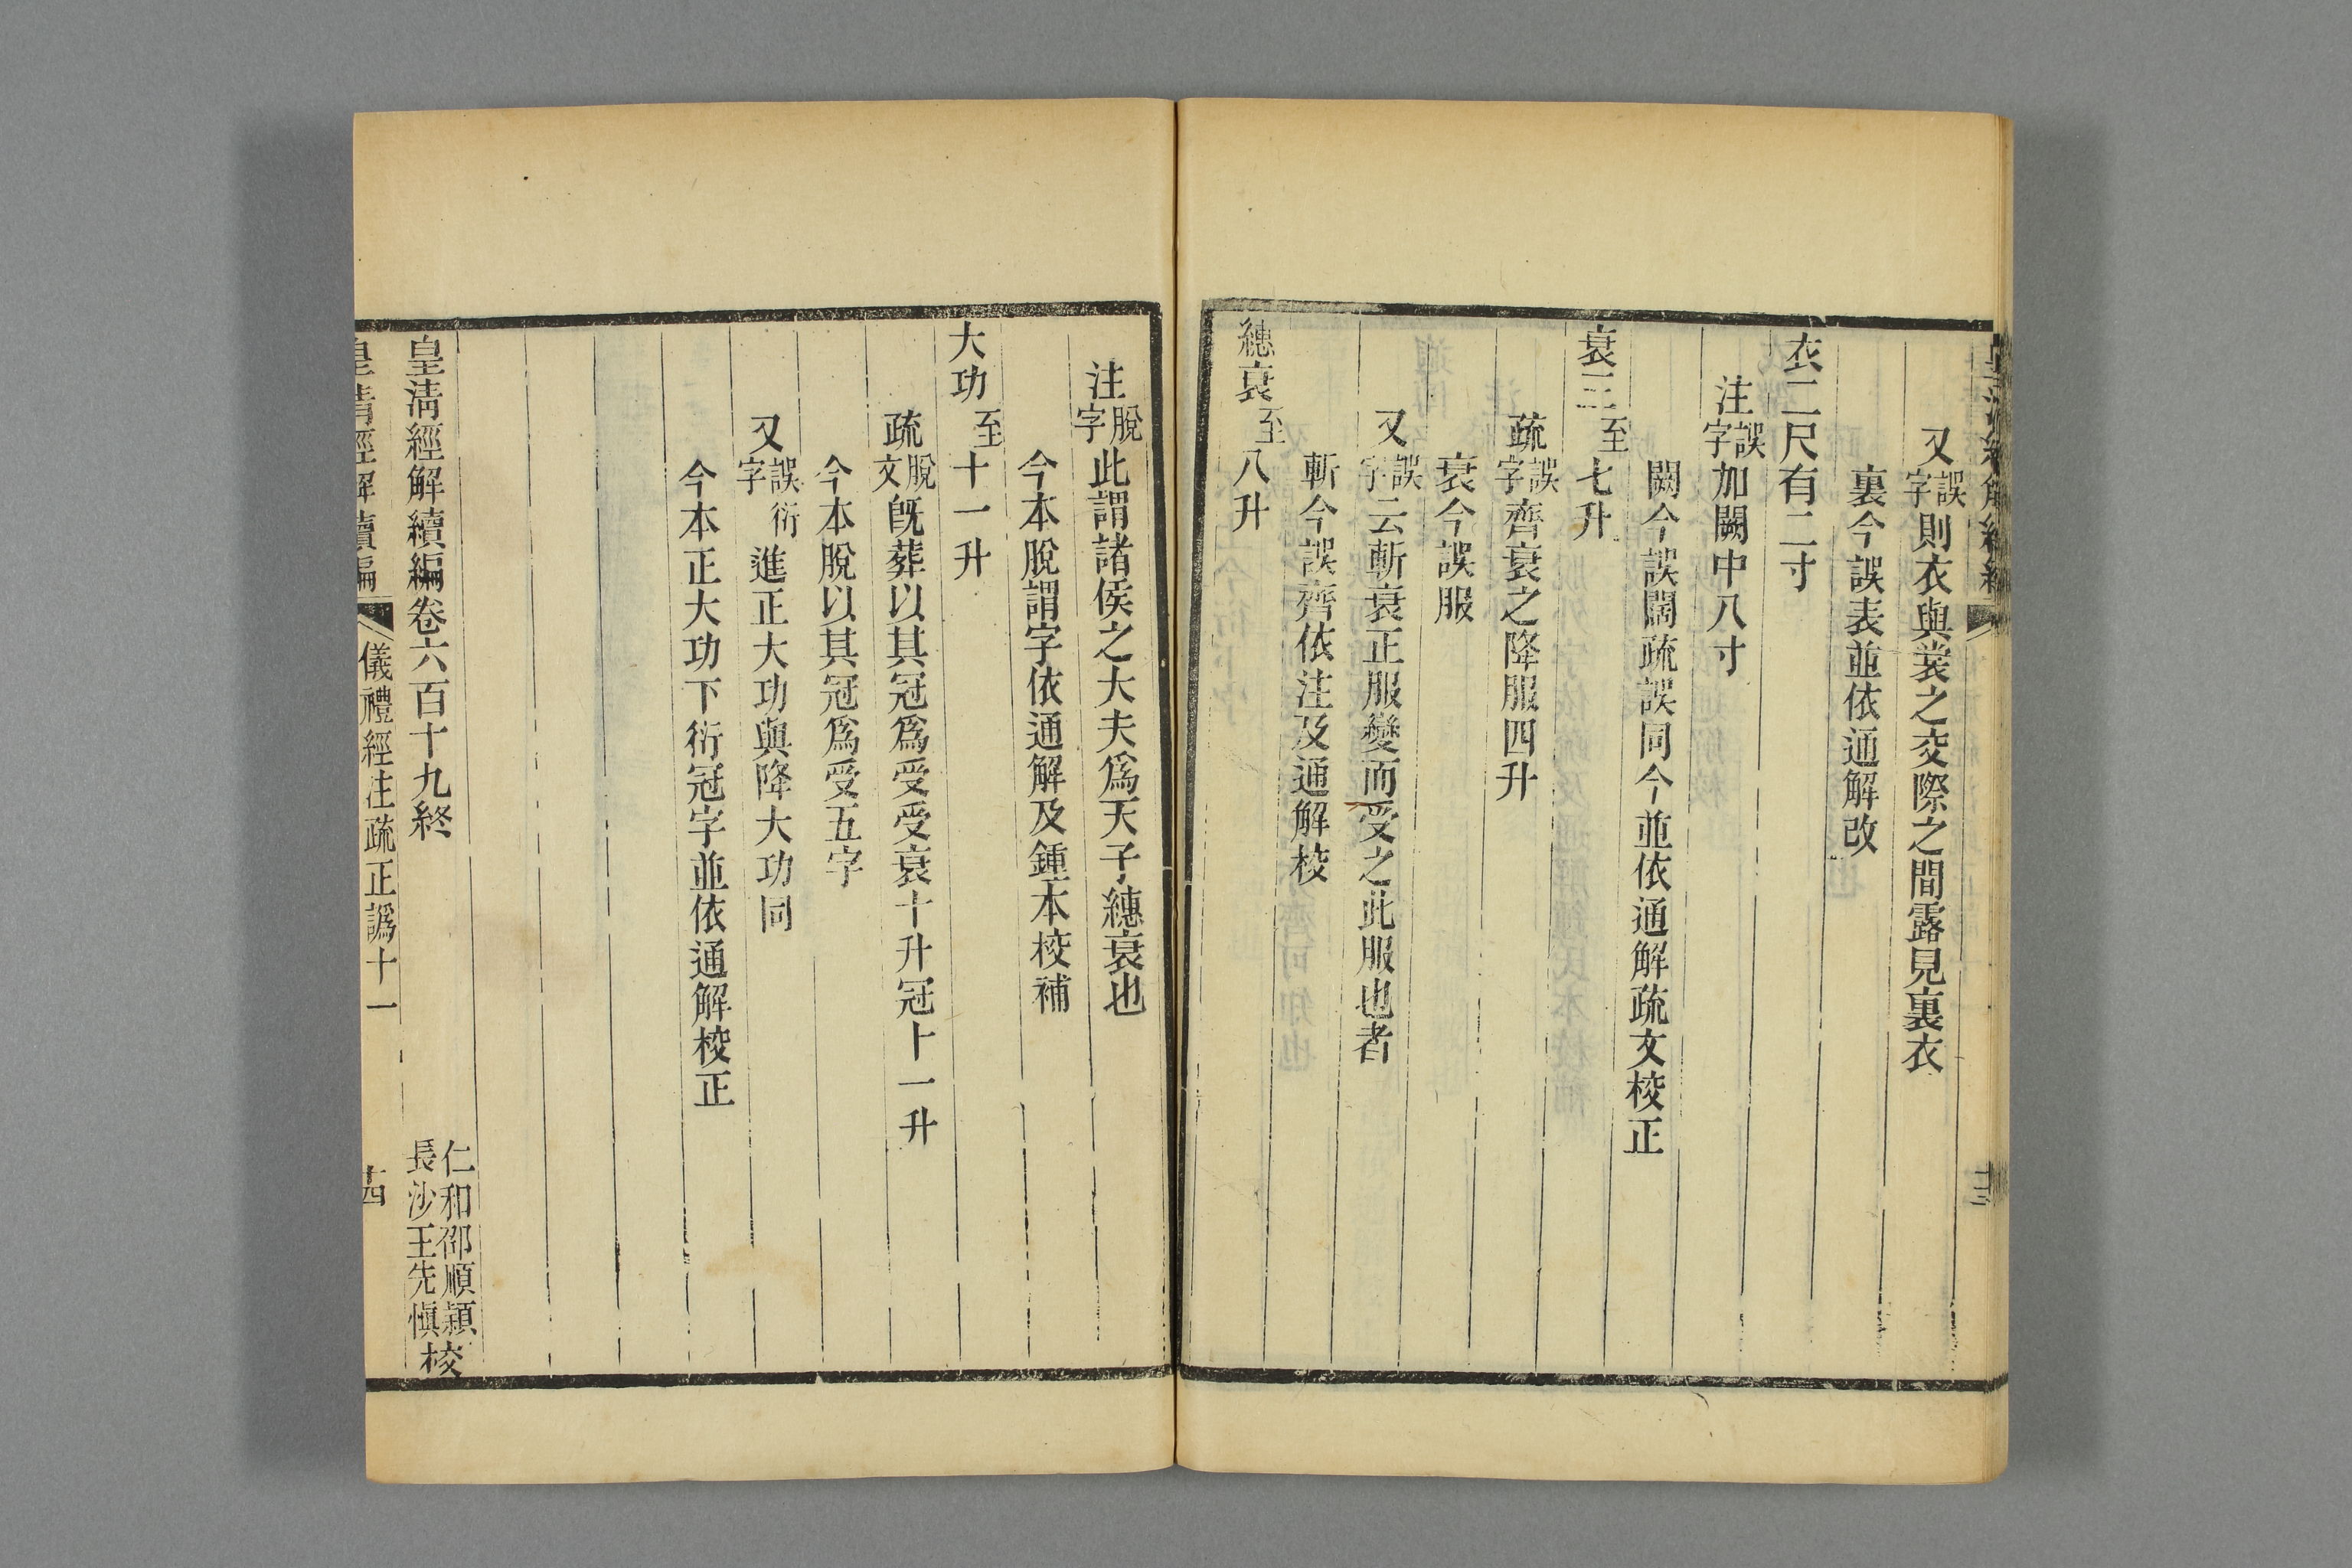 又誤字則衣與裳之交際之間露見裏衣
裏今誤表並依通解改
衣二尺有二寸
注誤字加闕中八寸
闕今誤闊疏誤同今並依通解疏文校正
衰三至七升
疏誤字齊衰之降服四升
衰今誤服
又誤字云斬衰正服變而受之此服也者
斬今誤齊依注及通解校
繐衰至八升
注脫字此謂諸侯之大夫爲天子繐衰也
今本脫謂字依通解及鍾本校補
大功至十一升
疏脫文旣葬以其冠爲受受衰十升冠十一升
今本脫以其冠爲受五字
又誤字衍進正大功與降大功同
今本正大功下衍冠字並依通解校正
皇清經解續編卷六百十九終
仁和邵順穎
長沙王先愼校
皇清經解續編 儀禮經注疏正譌十一 十四